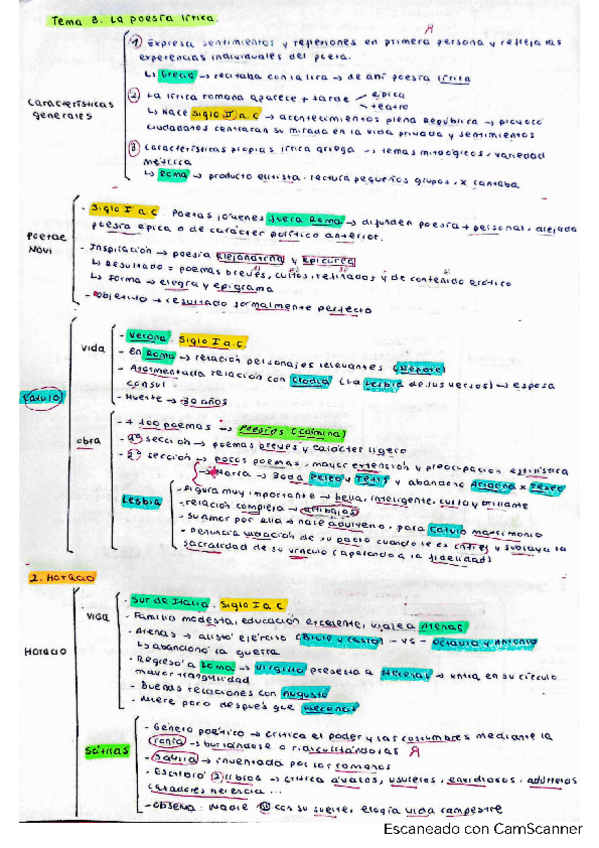 Tema 3. La poesía lírica.
Características generales
① Expresa sentimientos y reflexiones en primera persona y refleja las
experiencias individuales del poeta.
↳ Grecia → recitaba con la lira → de ahí poesía lírica
② La lírica romana aparece + tarde — épica
teatro
↳ Nace Siglo I a.C → acontecimientos plena República → provocó
ciudadanos centraran su mirada en la vida privada y sentimientos
③ Características propias lírica griega → temas mitológicos, variedad
métrica
↳ Roma → producto elitista, lectura pequeños grupos, x cantaba
Poetae Novi
- Siglo I a.C. Poetas jóvenes fuera Roma → difunden poesía + personal, alejada
poesía épica o de carácter político anterior.
- Inspiración → poesía alejandrina y epicúrea
↳ Resultado = poemas breves, cultos, refinados y de contenido erótico
↳ Forma → elegía y epigrama
- Objetivo → resultado formalmente perfecto
Catulo
vida
- Verona. Siglo I a.C
- En Roma → relación personajes relevantes (Nepote)
- Atormentada relación con Clodia (La Lesbia de sus versos) → esposa
cónsul
- Muerte → 30 años
obra
- + 100 poemas → Poesías (Carmina)
- 1ª sección → poemas breves y carácter ligero
- 2ª sección → pocos poemas, mayor extensión y preocupación estilística
→ Narra → Boda Peleo y Tetis y abandono Ariadna x Teseo
Lesbia
- Figura muy importante → bella, inteligente, culta y brillante
- relación compleja → altibajos
- su amor por ella → nace adúltero, para Catulo matrimonio
- Denuncia violación de su pacto cuando le es infiel y subraya la
sacralidad de su vínculo (apelando a la fidelidad)
2. Horacio
Horacio
Vida
- Sur de Italia. Siglo I a.C
- Familia modesta, educación excelente, viaje a Atenas
- Atenas → alistó ejército (Bruto y Casio) - VS - Octavio y Antonio
↳ abandonó la guerra
- Regresó a Roma → Virgilio presenta a Mecenas → entra en su círculo
mayor tranquilidad
- Buenas relaciones con Augusto
- Muere poco después que Mecenas
Sátiras
- Género poético → critica el poder y las costumbres mediante la
ironía → burlándose o ridiculizándolas
- Sátira → inventada por los romanos
- Escribió 2 libros → critica avaros, usureros, envidiosos, adúlteros
cazadores herencia ...
- Observa: Nadie con su suerte, elogia vida campestre
Escaneado con CamScanner